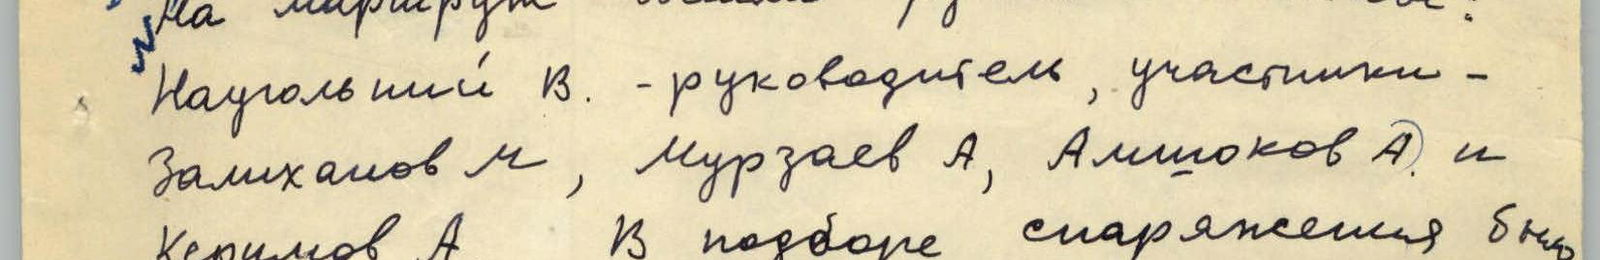 На маршрут
Наугольный В. - руководитель, участники -
Залиханов М, Мурзаев А, Амшоков А. и
Керимов А В подборе снаряжения было